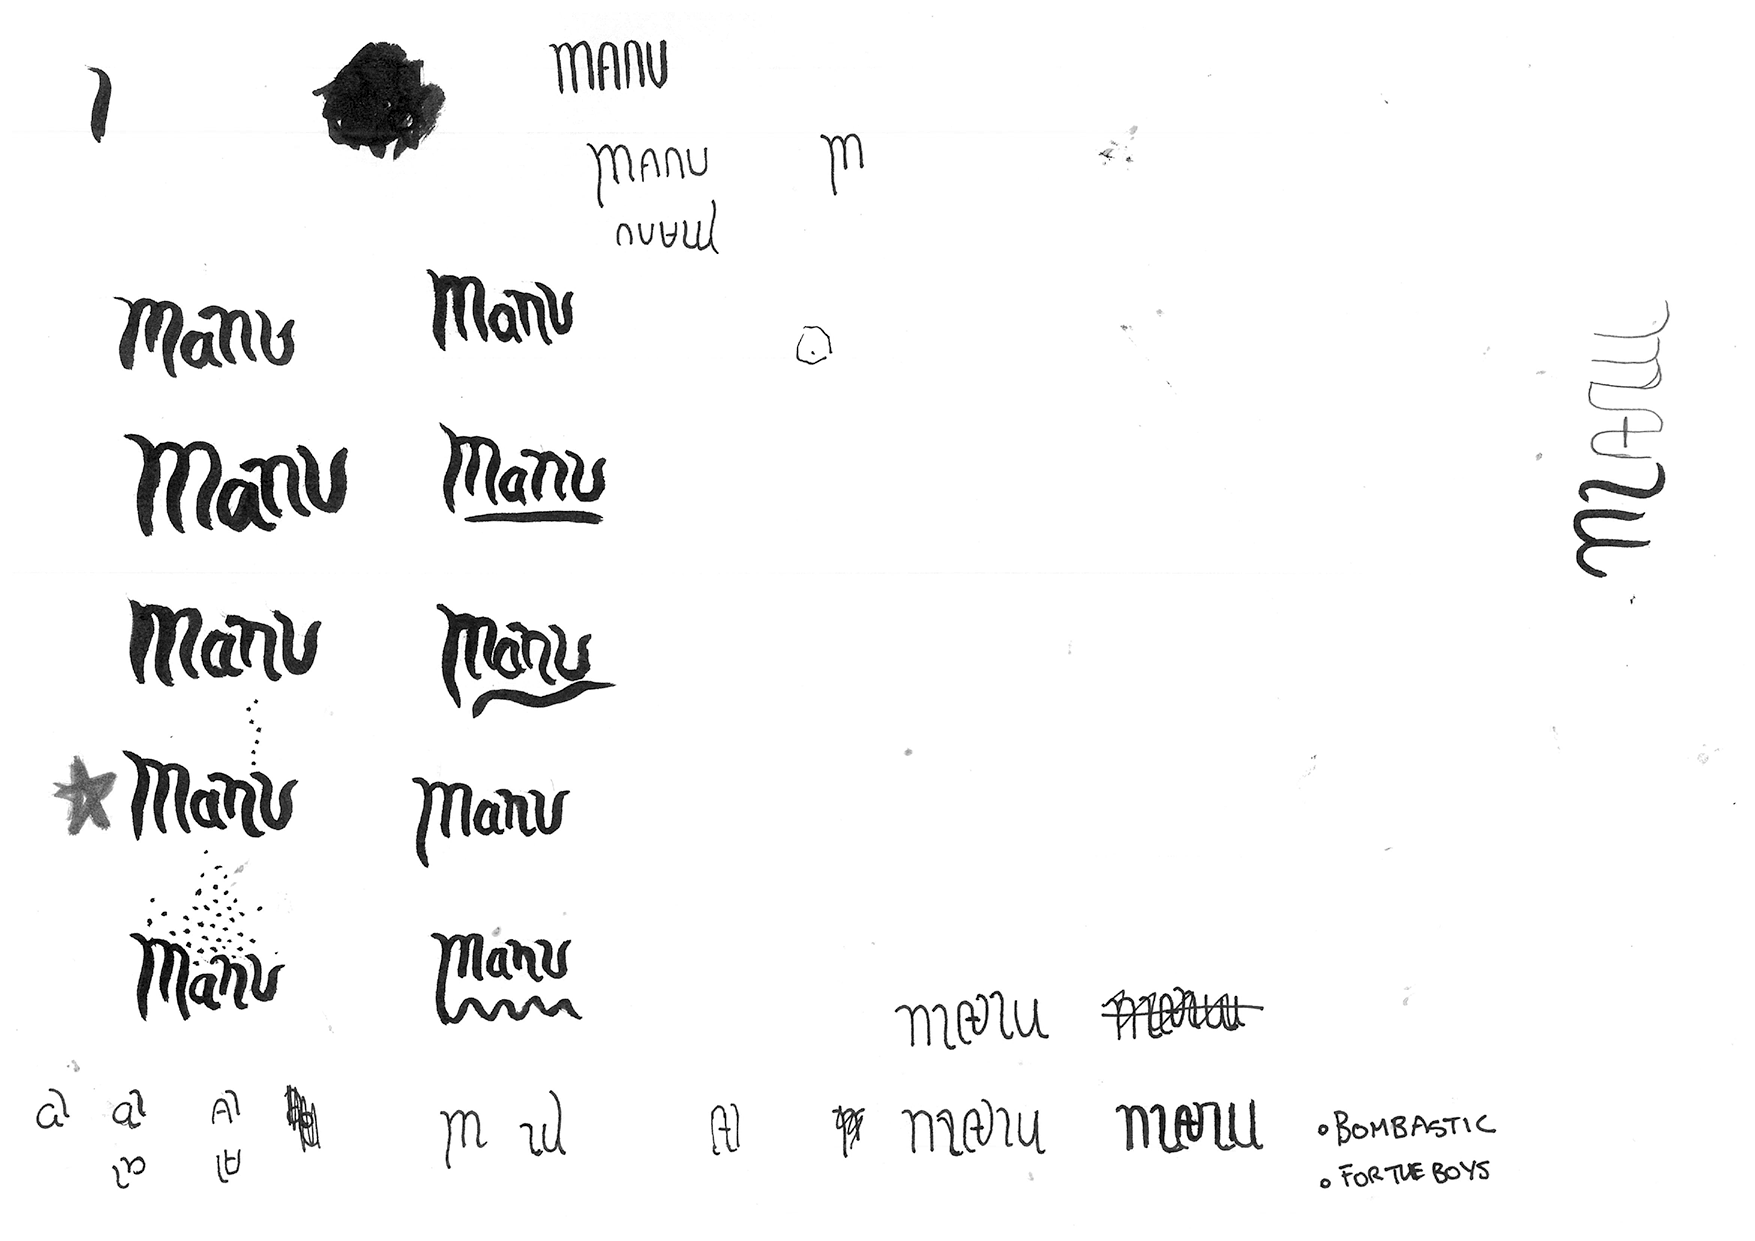 MANU
MANU
M
MANU
manu
manu
manu
manu
manu
manu
manu
manu
manu
manu
manu
manu
a
a
A
m
A
manu
manu
• BOMBASTIC
• FOR THE BOYS
MANU